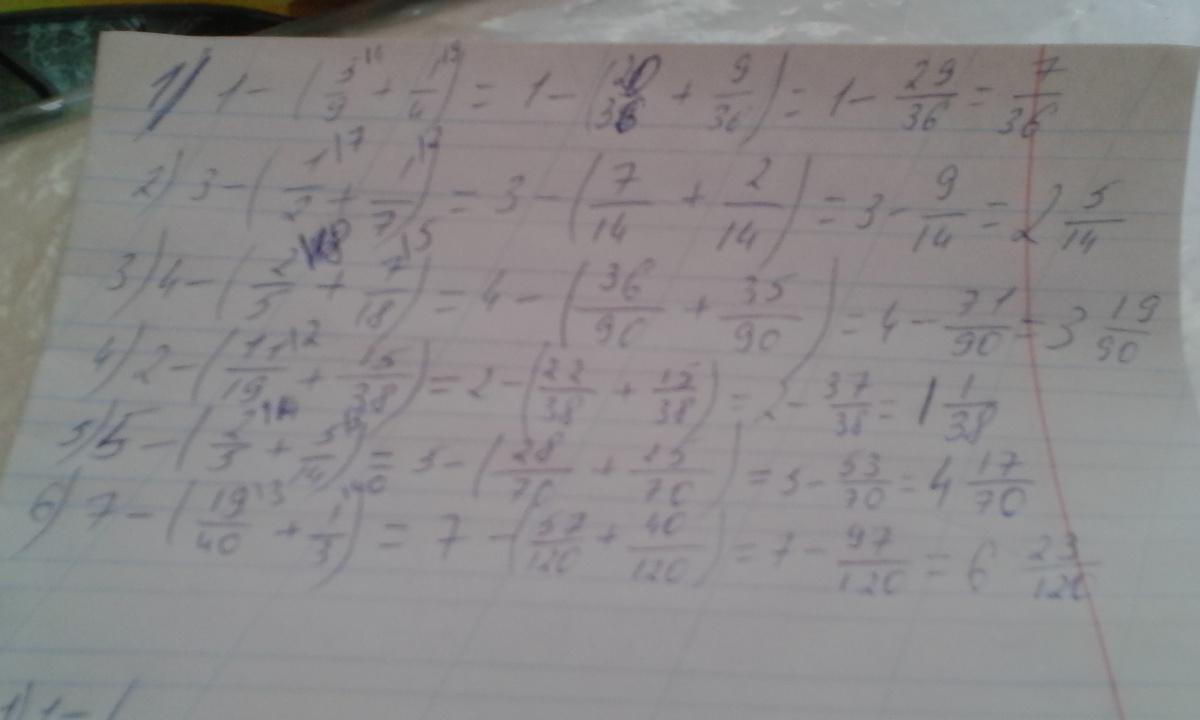 1) 1 - (5/9 \4 + 1/4 \9) = 1 - (20/36 + 9/36) = 1 - 29/36 = 7/36
2) 3 - (1/2 \7 + 1/7 \2) = 3 - (7/14 + 2/14) = 3 - 9/14 = 2 5/14
3) 4 - (2/5 \18 + 7/18 \5) = 4 - (36/90 + 35/90) = 4 - 71/90 = 3 19/90
4) 2 - (11/19 \2 + 15/38) = 2 - (22/38 + 15/38) = 2 - 37/38 = 1 1/38
5) 5 - (2/5 + 5/14) = 5 - (28/70 + 25/70) = 5 - 53/70 = 4 17/70
6) 7 - (19/40 \3 + 1/3) = 7 - (57/120 + 40/120) = 7 - 97/120 = 6 23/120
1) 1 - (